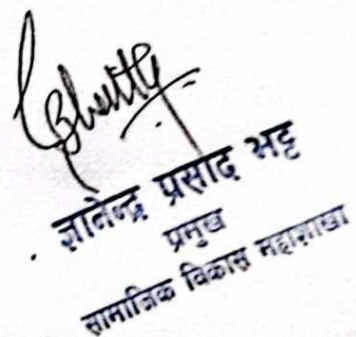 ज्ञानेन्द्र प्रसाद भट्ट
प्रमुख
सामाजिक विकास महाशाखा